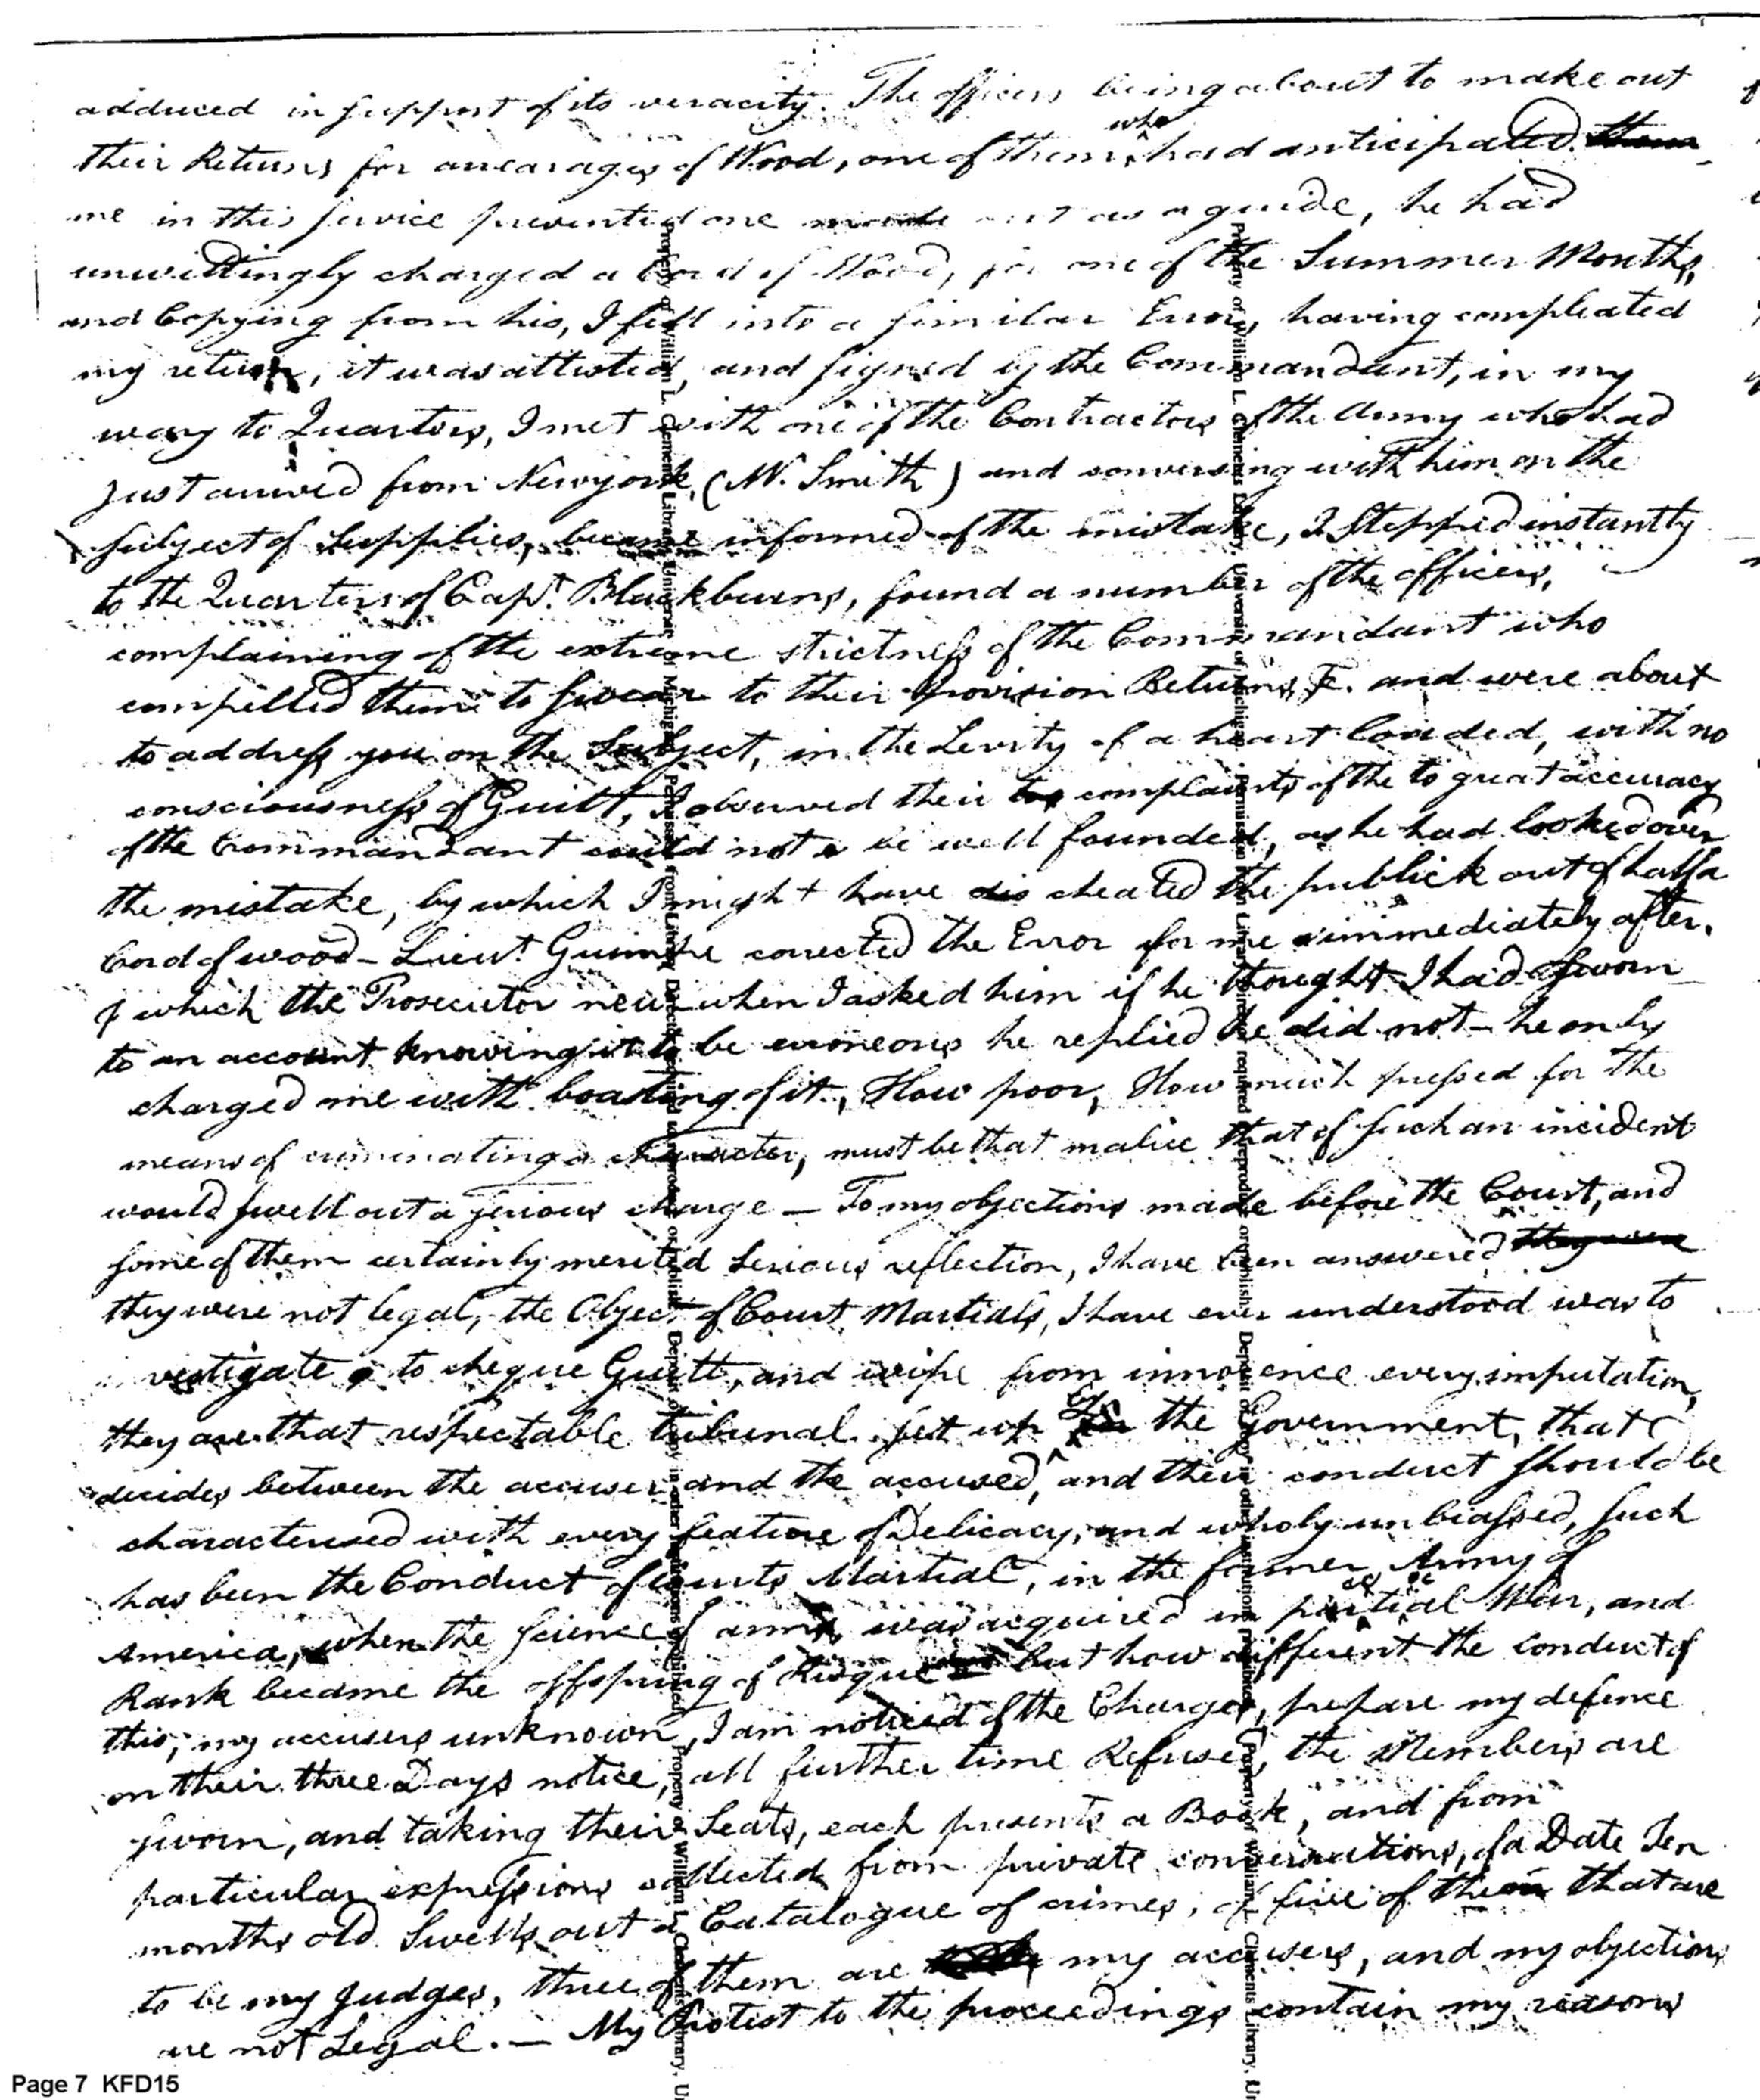 adduced in support of its veracity. The officers being about to make out
their Returns for arearages of Wood, one of them who had anticipated them
me in this service presented one made out as a guide, he had
unwittingly charged a Cord of Wood, for one of the Summer Months,
and Copying from his, I fell into a similar Error, having compleated
my return, it was attested, and signed by the Commandant, in my
way to Quarters, I met with one of the Contractors of the Army who had
just arrived from Newyork, (Mr. Smith) and conversing with him on the
subject of Supplies, became informed of the mistake, I Stepped instantly
to the Quarters of Capt. Blackburns, found a number of the officers,
complaining of the extreme strictness of the Commandant who
compelled them to swear to their Provision Returns, &. and were about
to address you on the Subject, in the Levity of a heart loaded, with no
consciousness of Guilt, I observed their too complaints of the to great accuracy
of the Commandant could not be well founded, as he had looked over
the mistake, by which I might have cheated the publick out of half a
Cord of wood - Lieut. corrected the Error for me immediately after.
of which the Prosecutor new when I asked him if he thought I had sworn
to an account knowing it to be erroneous he replied he did not - he only
charged me with boasting of it., How poor, How much pressed for the
means of criminating a character, must be that malice that of such an incident
would swell out a serious charge — To my objections made before the Court, and
some of them certainly merited serious reflection, I have been answered they were
they were not legal, the Object of Court Martials, I have ever understood was to
vestigate to cheque Guilt, and wipe from innocence every imputation,
they are that respectable tribunal set up by the Government, that
decides between the accuser and the accused, and their conduct should be
characterised with every feature of Delicacy, and wholy unbiassed, such
has been the Conduct of Courts Martial, in the former Army of
America, when the science of arms, was acquired in partial War, and
Rank became the offspring of Risque but how different the conduct of
this, my accusers unknown, I am noticed of the Charges, prepare my defence
on their three Days notice, all further time Refused, the Members are
sworn, and taking their Seats, each presents a Book, and from
particular expressions collected from private conversations, of a Date Ten
months old. Swells out a Catalogue of crimes, of five of them that are
to be my Judges, three of them are my accusers, and my objections
are not Legal. — My Protest to the proceedings contain my reasons
Property of William L. Clements Library, University of Michigan. Permission from Library Director required to reproduce or publish. Deposit of copy in other institutions prohibited.
Property of William L. Clements Library, University of Michigan. Permission from Library Director required to reproduce or publish. Deposit of copy in other institutions prohibited.
Property of William L. Clements Library, Un
Property of William L. Clements Library, Un
Page 7 KFD15